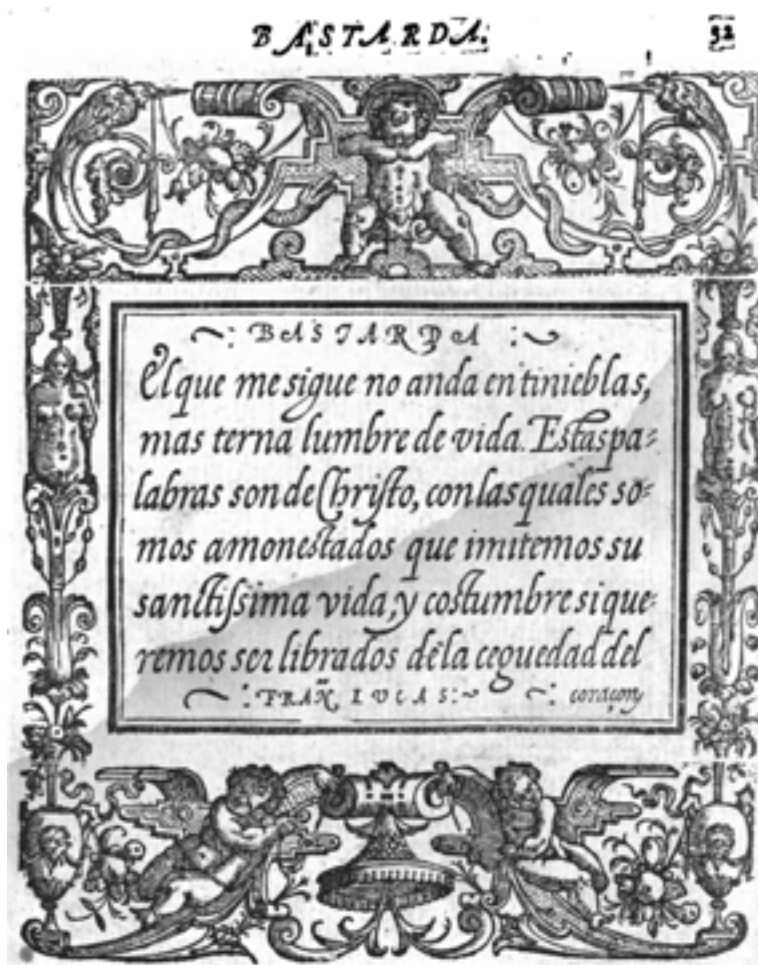 BASTARDA.
32
BASTARDA
El que me sigue no anda en tinieblas,
mas terna lumbre de vida. Estas pa=
labras son de Christo, con las quales so=
mos amonestados que imitemos su
sanctissima vida, y costumbre si que=
remos ser librados dela ceguedad del
FRAN. LUCAS: coraçon